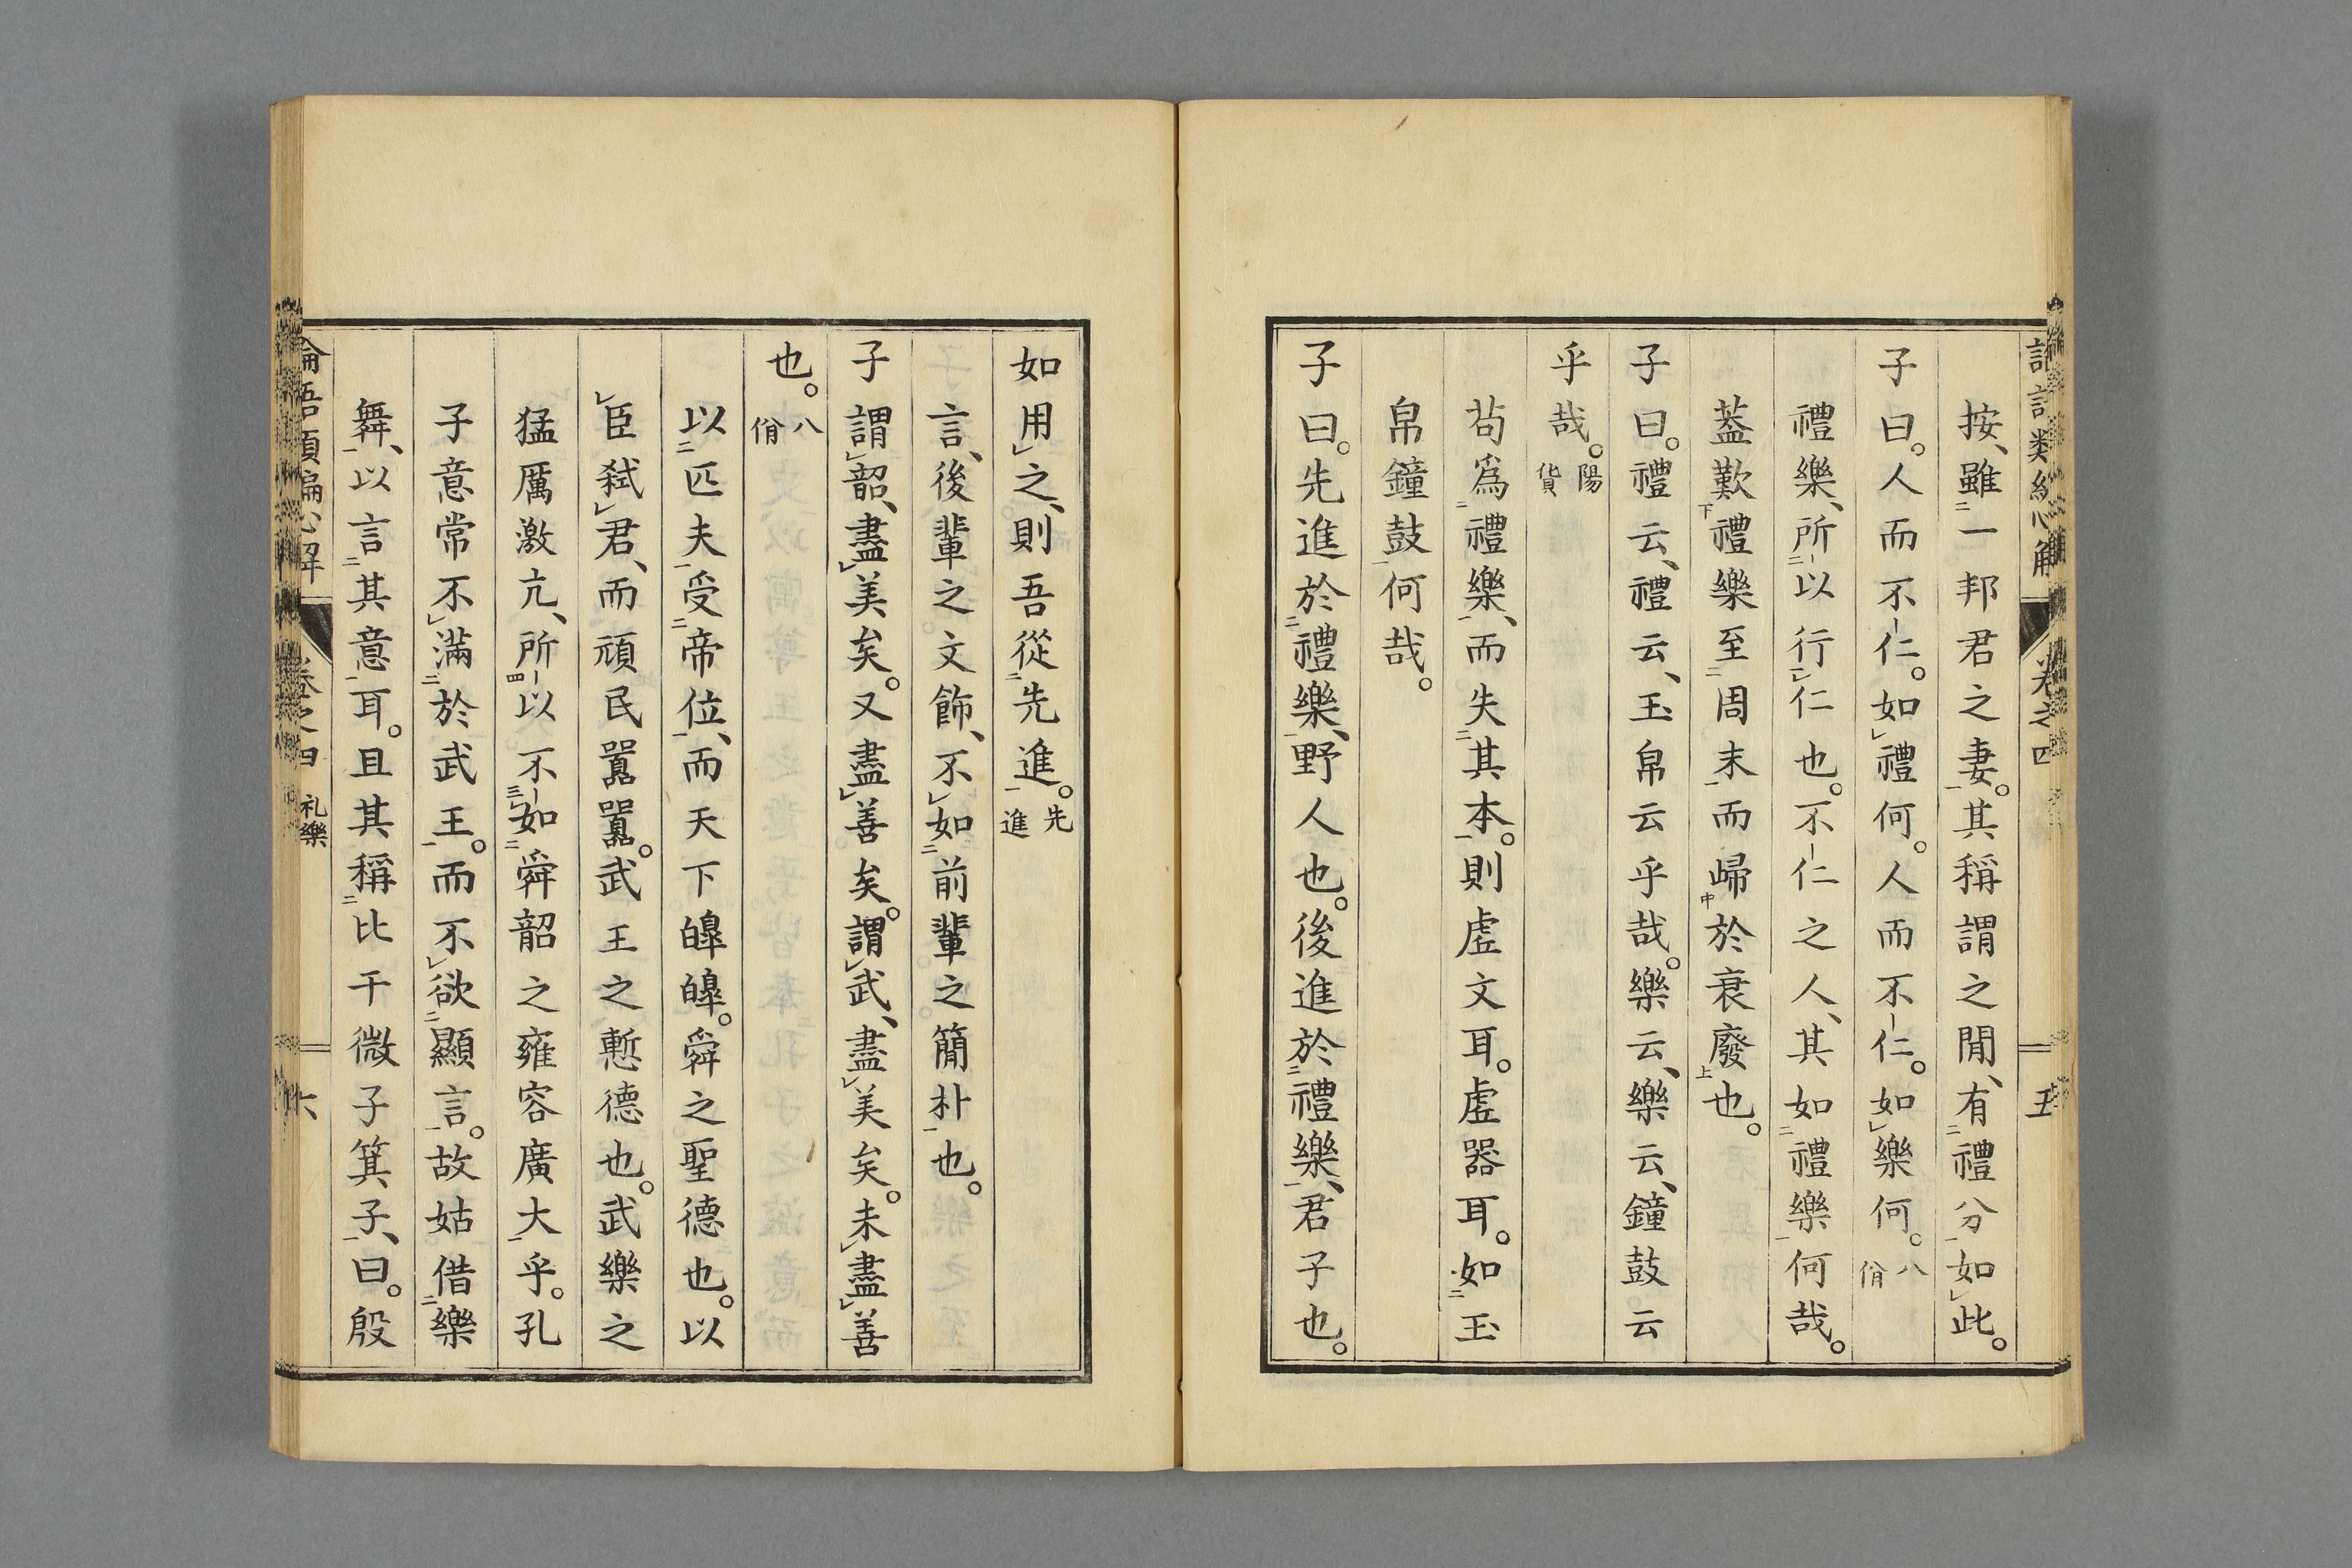 按、雖一邦君之妻。其稱謂之閒、有禮分如此。
子曰。人而不仁。如禮何。人而不仁。如樂何。八佾
禮樂、所以行仁也。不仁之人、其如禮樂何哉。
蓋歎禮樂至周末而歸於衰廢也。
子曰。禮云、禮云、玉帛云乎哉。樂云、樂云、鐘鼓云
乎哉。陽貨
苟爲禮樂、而失其本。則虛文耳。虛器耳。如玉
帛鐘鼓何哉。
子曰。先進於禮樂、野人也。後進於禮樂、君子也。
如用之、則吾從先進。先進
言、後輩之文飾、不如前輩之簡朴也。
子謂韶、盡美矣。又盡善矣。謂武、盡美矣。未盡善
也。八佾
以匹夫受帝位、而天下皥皥。舜之聖德也。以
臣弒君、而頑民囂囂。武王之慙德也。武樂之
猛厲激亢、所以不如舜韶之雍容廣大乎。孔
子意常不滿於武王。而不欲顯言。故姑借樂
舞、以言其意耳。且其稱比干微子箕子、曰。殷
卷之四 礼樂